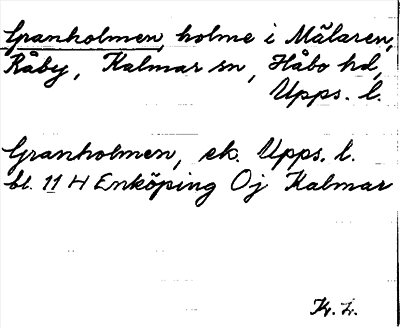 Granholmen, holme i Mälaren,
Råby, Kalmar sn, Håbo hd,
Upps. l.
Granholmen, ek. Upps. l.
bl. 11 H Enköping Oj Kalmar
Kr. L.